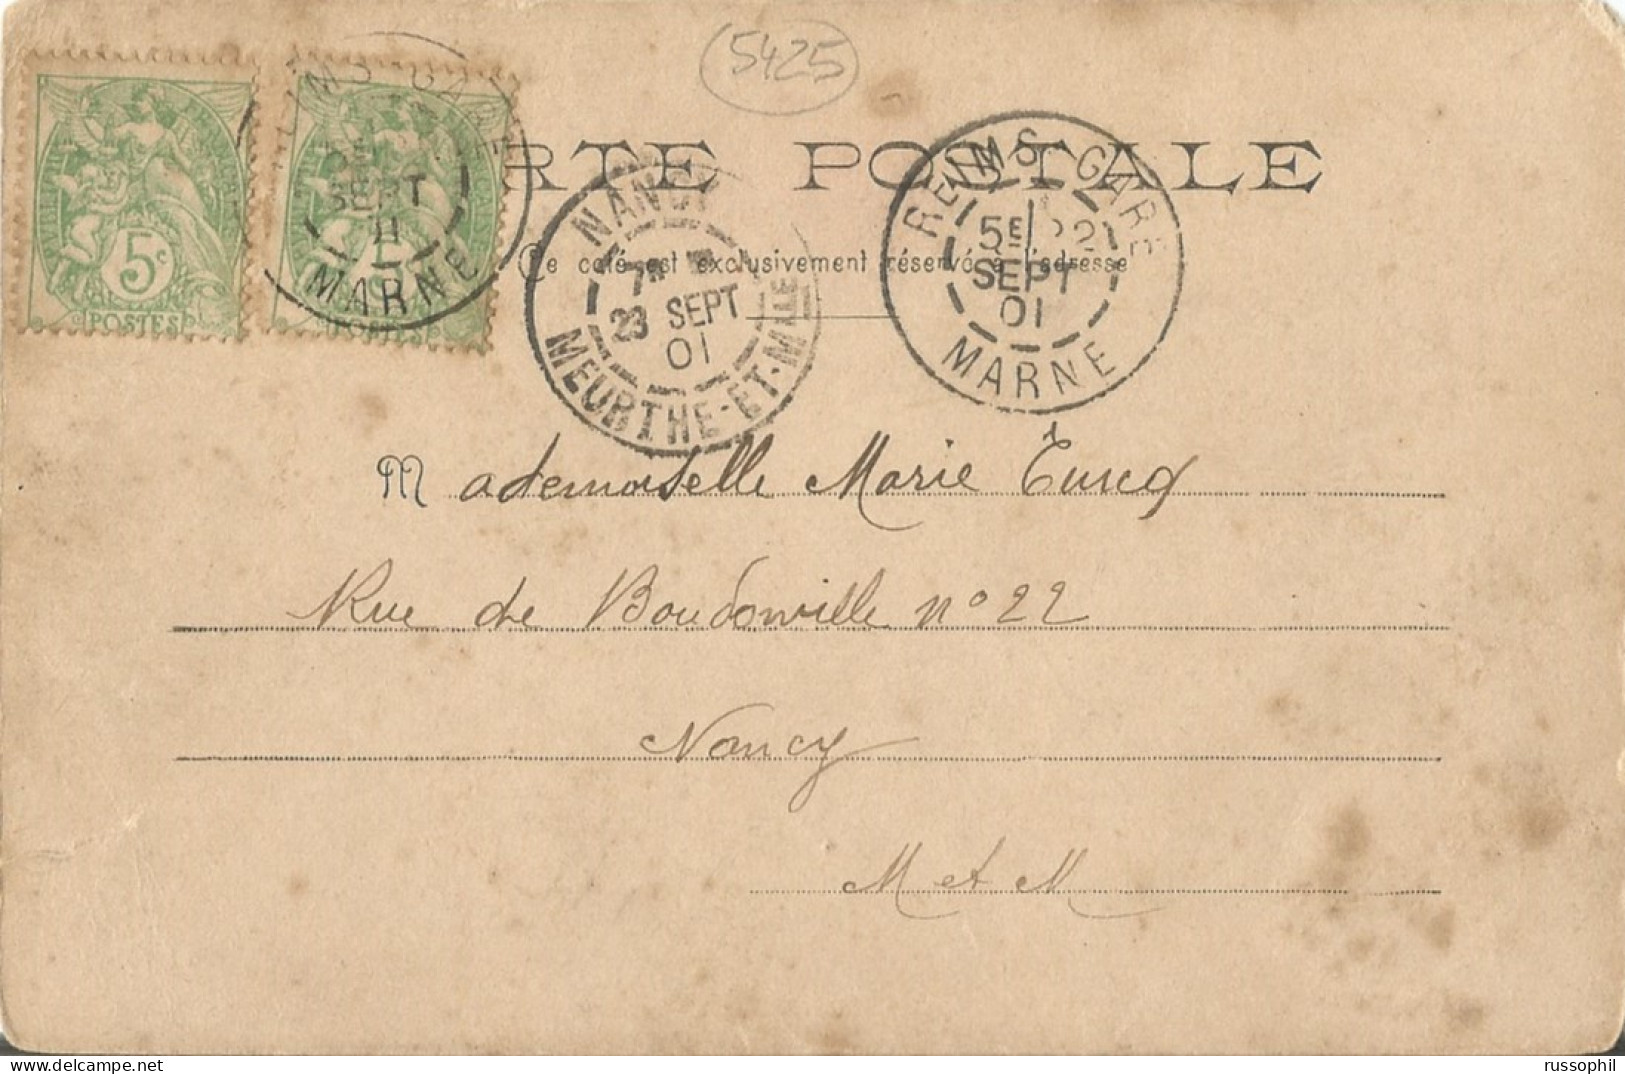 5425
CARTE POSTALE
Ce côté est exclusivement réservé à l'adresse
5c
POSTES
REIMS GARE
SEPT
01
MARNE
NANCY
23 SEPT
01
MEURTHE-ET-MLLE
REIMS GARE
5E 22
SEPT
01
MARNE
Mademoiselle Marie Turcq
Rue de Boudonville no 22
Nancy
M et M
russophil